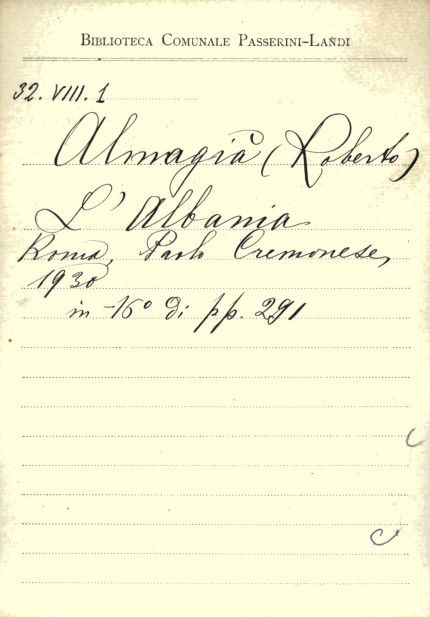 Biblioteca Comunale Passerini-Landi
32. VIII. 1
Almagià (Roberto)
L' Albania
Roma, Paolo Cremonese,
1930
in -16° di pp. 291